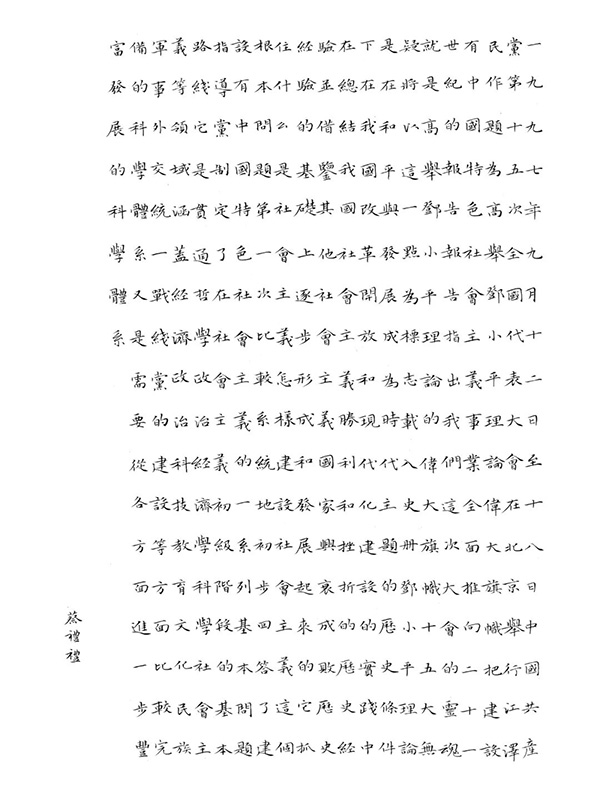 一九九七年九月十二日至十八日中國共產
黨第十五次全國代表大會在北京舉行江澤
民作題為高舉鄧小平理論偉大旗幟把建設
有中國特色社會主義事業全面推向二十一
世紀的報告報告指出我們這次大會的靈魂
就是高舉鄧小平理論的偉大旗幟十五大無
疑將以這一點為標志載入史册鄧小平理論
是在和平與發展成為時代主題的歷史條件
下在我國改革開放和現代化建設的實踐中
在總結我國社會主義勝利和挫折的歷史經
驗並借鑒其他社會主義國家興衰成敗歷史
經驗的基礎上逐步形成和發展起來的它抓
住什么是社會主義怎樣建設社會主義這個
根本問題第一次比較系統地初步回答了建
設有中國特色社會主義的一系列基本問題
指導黨制定了在社會主義初級階段的基本
路綫它是貫通哲學政治經濟學科學社會主
義等領域涵蓋經濟政治科技教育文化民族
軍事外交統一戰綫黨的建設等方面比較完
備的科學體系又是需要從各方面進一步豐
富發展的科學體系
蔡禮禮